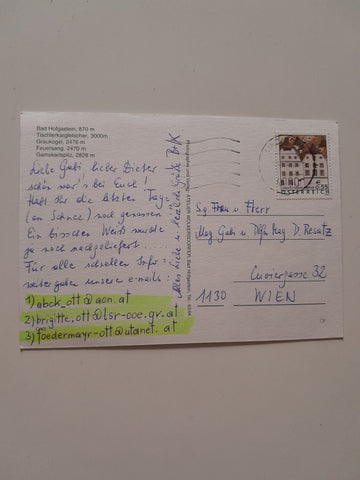 Bad Hofgastein, 870 m
Tischlerkargletscher, 3000m
Graukogel, 2476 m
Feuersang, 2470 m
Gamskarlspitz, 2828 m
Liebe Gabi, lieber Dieter
schön war's bei Euch!
Habt Ihr die letzten Tage
(an Schnee) noch genossen
Ein bisschen Weiß wurde
ja noch nachgeliefert....
Für alle schnellen Info-
weitergaben unsere e-mails:
1) abck_ott@aon.at
2) brigitte.ott@lsr-ooe.gv.at
3) foedermayr-ott@utanet.at
Alles Liebe u. herzlich Grüße
0,55
ÖSTERREICH
Sg Frau u Herr
Mag Gabi u. Dipl. Ing D. Resatz
Cuviergasse 32
1130 WIEN